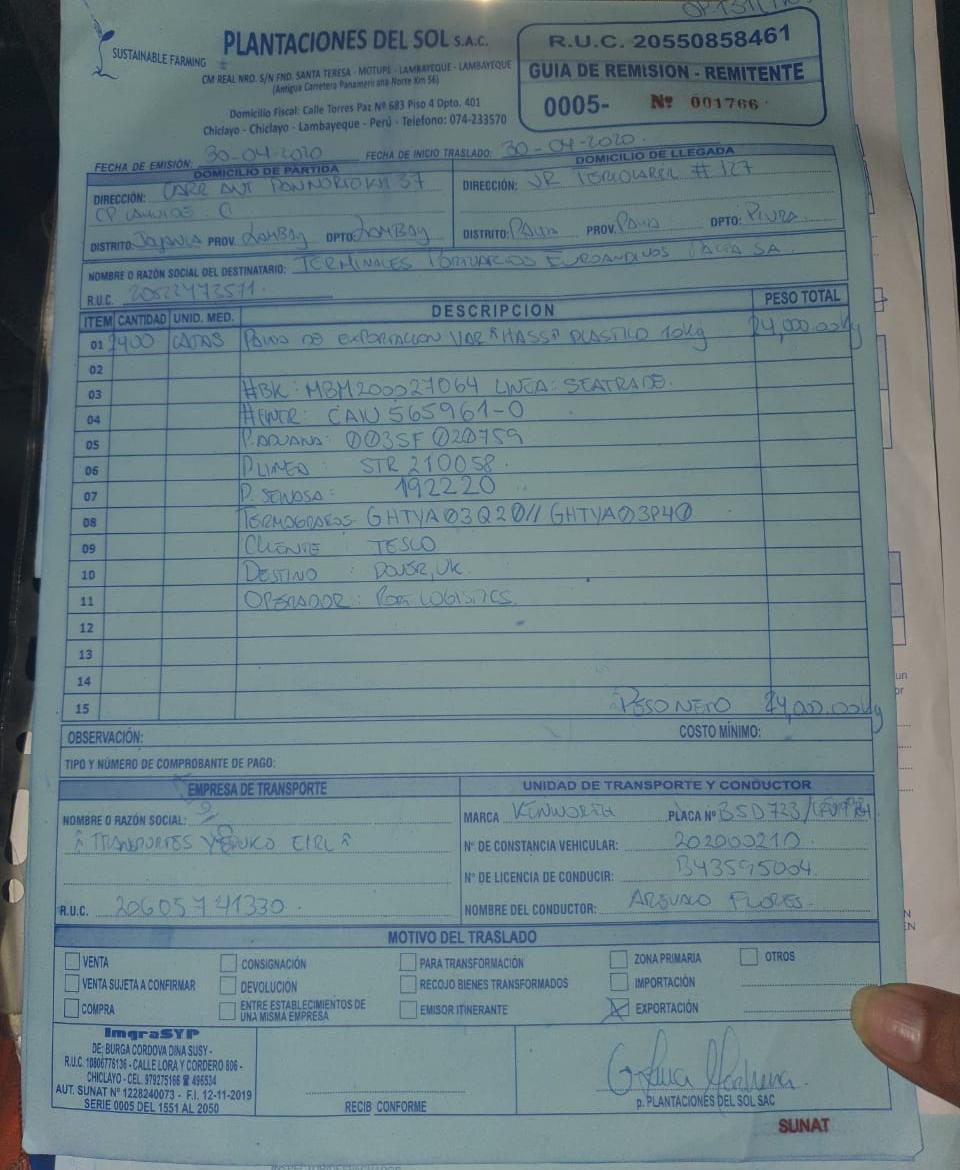 SUSTAINABLE FARMING
PLANTACIONES DEL SOL S.A.C.
CM REAL NRO. S/N FND. SANTA TERESA - MOTUPE - LAMBAYEQUE - LAMBAYEQUE
(Antigua Carretera Panamericana Norte Km 56)
Domicilio Fiscal: Calle Torres Paz Nº 683 Piso 4 Dpto. 401
Chiclayo - Chiclayo - Lambayeque - Perú - Telefono: 074-233570
R.U.C. 20550858461
GUIA DE REMISION - REMITENTE
0005- Nº 001766
FECHA DE EMISIÓN: 30-04-2020 FECHA DE INICIO TRASLADO: 30-04-2020
DOMICILIO DE PARTIDA
DIRECCIÓN: CARR ANT PAN NORTE KM 37
DISTRITO: PROV. LAMBAY DPTO: LAMBAY
DOMICILIO DE LLEGADA
DIRECCIÓN: JR # 127
DISTRITO: PAITA PROV. PAITA DPTO: PIURA
NOMBRE O RAZÓN SOCIAL DEL DESTINATARIO: TERMINALES PORTUARIOS EUROANDINOS PAITA SA
R.U.C. 20522473571
ITEM CANTIDAD UNID. MED. DESCRIPCION PESO TOTAL
01 2400 CAJAS PALTA DE EXPORTACION VAR "HASS" PLASTICO 10Kg 24,000.00Kg
02
03 #BK: MBM200027064 LINEA: SEATRADE
04 #CNTR: CAIU 565961-0
05 P.ADUANA: 003SF 020759
06 P.LINEA: STR 210058
07 P. SENASA: 192220
08 TERMOGRAFOS GHTYA03Q20// GHTYA03P40
09 CLIENTE : TESCO
10 DESTINO : DOVER, UK.
11 OPERADOR: LOGISTICS
12
13
14
15 PESO NETO 24,000.00Kg
OBSERVACIÓN: COSTO MÍNIMO:
TIPO Y NÚMERO DE COMPROBANTE DE PAGO:
EMPRESA DE TRANSPORTE
NOMBRE O RAZÓN SOCIAL:
TRANSPORTES EIRL
R.U.C. 20605741330
UNIDAD DE TRANSPORTE Y CONDUCTOR
MARCA KENWORTH PLACA Nº BSD723/
Nº DE CONSTANCIA VEHICULAR: 202000210
Nº DE LICENCIA DE CONDUCIR: B43595004
NOMBRE DEL CONDUCTOR: AREVALO FLORES
MOTIVO DEL TRASLADO
VENTA CONSIGNACIÓN PARA TRANSFORMACIÓN ZONA PRIMARIA OTROS
VENTA SUJETA A CONFIRMAR DEVOLUCION RECOJO BIENES TRANSFORMADOS IMPORTACIÓN
COMPRA ENTRE ESTABLECIMIENTOS DE UNA MISMA EMPRESA EMISOR ITINERANTE X EXPORTACIÓN
ImgraSYP
DE: BURGA CORDOVA DINA SUSY -
R.U.C. 10806776136 - CALLE LORA Y CORDERO 806 -
CHICLAYO - CEL. 979275166 ☎ 496534
AUT. SUNAT Nº 1228240073 - F.I. 12-11-2019
SERIE 0005 DEL 1551 AL 2050
RECIBI CONFORME
p. PLANTACIONES DEL SOL SAC
SUNAT